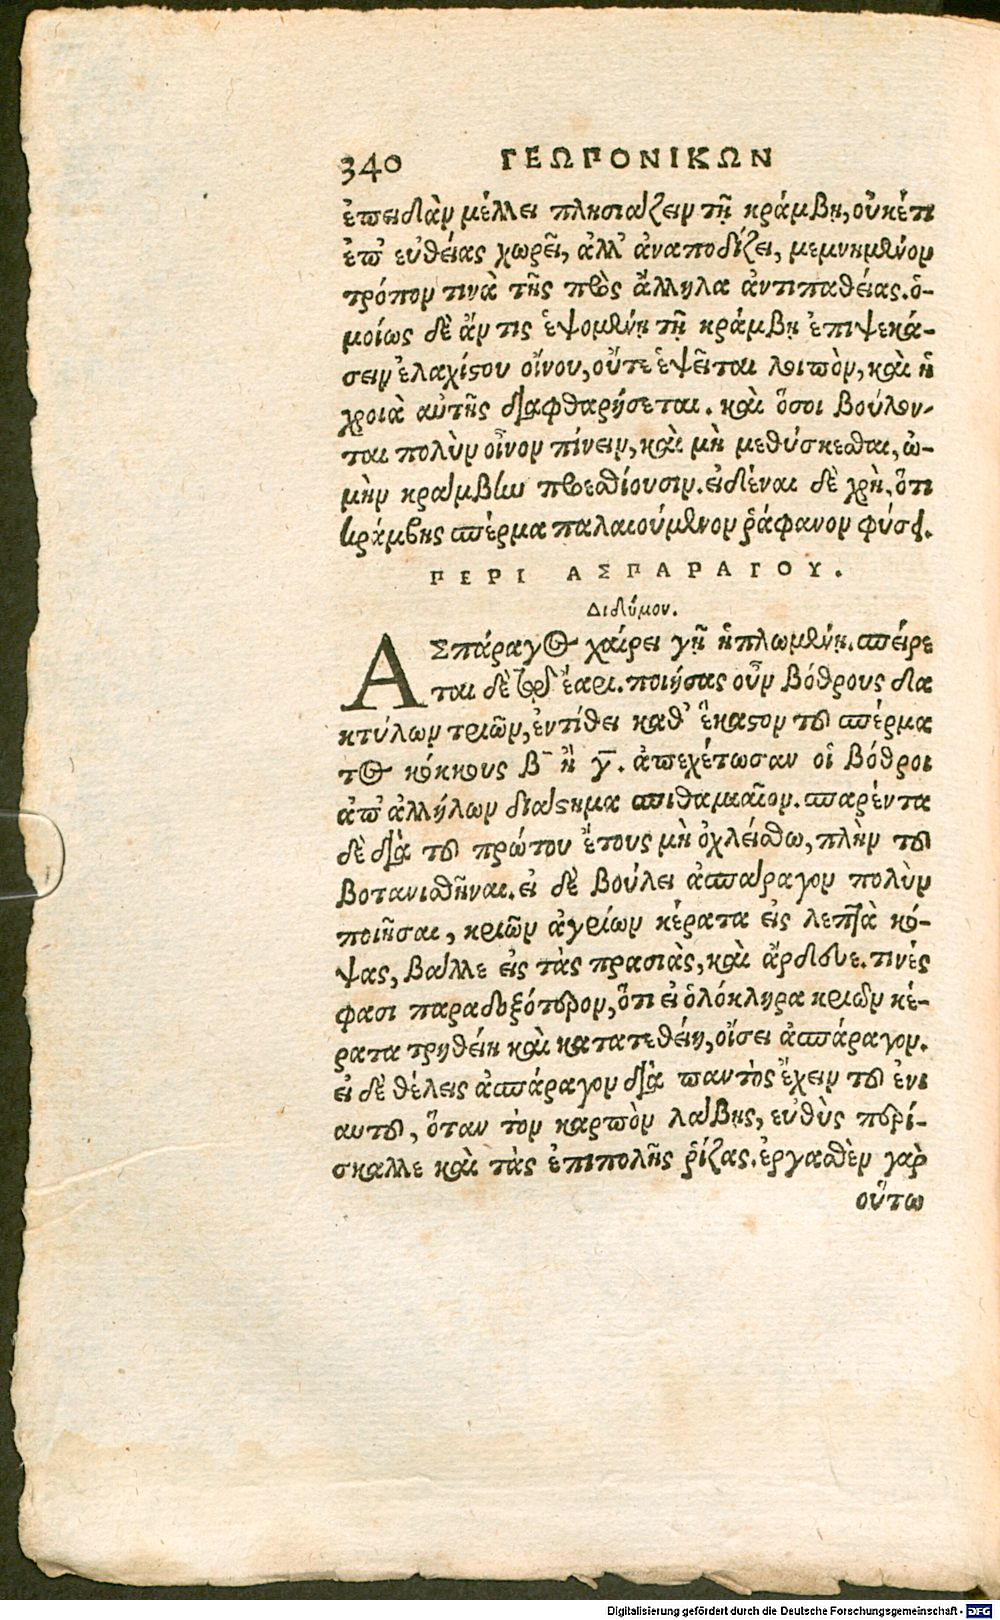 340 ΓΕΩΠΟΝΙΚΩΝ
ἐπειδὰν μέλλει πλησιάζειν τῇ κράμβῃ, οὐκέτι
ἐπ' εὐθείας χωρεῖ, ἀλλ' ἀναποδίζει, μεμνημένον
τρόπον τινὰ τῆς πρὸς ἄλληλα ἀντιπαθείας. ὁ-
μοίως δὲ ἄν τις ἑψομένῃ τῇ κράμβῃ ἐπιψεκά-
σειν ἐλαχίστου οἴνου, οὔτε ἑψεῖται λοιπὸν, καὶ ἡ
χροιὰ αὐτῆς διαφθαρήσεται. καὶ ὅσοι βούλον-
ται πολὺν οἶνον πίνειν, καὶ μὴ μεθύσκεσθαι, ὠ-
μὴν κράμβην προεσθίουσιν. εἰδέναι δὲ χρὴ, ὅτι
κράμβης σπέρμα παλαιούμενον ῥάφανον φύσει.
ΠΕΡΙ ΑΣΠΑΡΑΓΟΥ.
Διδύμου.
ΑΣπάραγος χαίρει γῇ ἡπλωμένῃ. σπείρε
ται δὲ ἔαρι. ποιήσας οὖν βόθρους δα
κτύλων τριῶν, ἐντίθει καθ' ἕκαστον τοῦ σπέρμα
τος κόκκους β ἢ γ. ἀπεχέτωσαν οἱ βόθροι
ἀπ' ἀλλήλων διάστημα σπιθαμιαῖον. σπαρέντα
δὲ διὰ τοῦ πρώτου ἔτους μὴ ὀχλείσθω, πλὴν τοῦ
βοτανισθῆναι. εἰ δὲ βούλει ἀσπάραγον πολὺν
ποιῆσαι, κριῶν ἀγρίων κέρατα εἰς λεπτὰ κό-
ψας, βάλλε εἰς τὰς πρασιὰς, καὶ ἄρδευε. τινές
φασι παραδοξότερον, ὅτι εἰ ὁλόκληρα κριῶν κέ-
ρατα τρηθείη καὶ κατατεθείη, οἴσει ἀσπάραγον.
εἰ δὲ θέλεις ἀσπάραγον διὰ παντὸς ἔχειν τοῦ ἐνι
αυτοῦ, ὅταν τὸν καρπὸν λάβῃς, εὐθὺς περί-
σκαλλε καὶ τὰς ἐπιπολῆς ῥίζας. ἐργασθὲν γὰρ
οὕτω
Digitalisierung gefördert durch die Deutsche Forschungsgemeinschaft - DFG